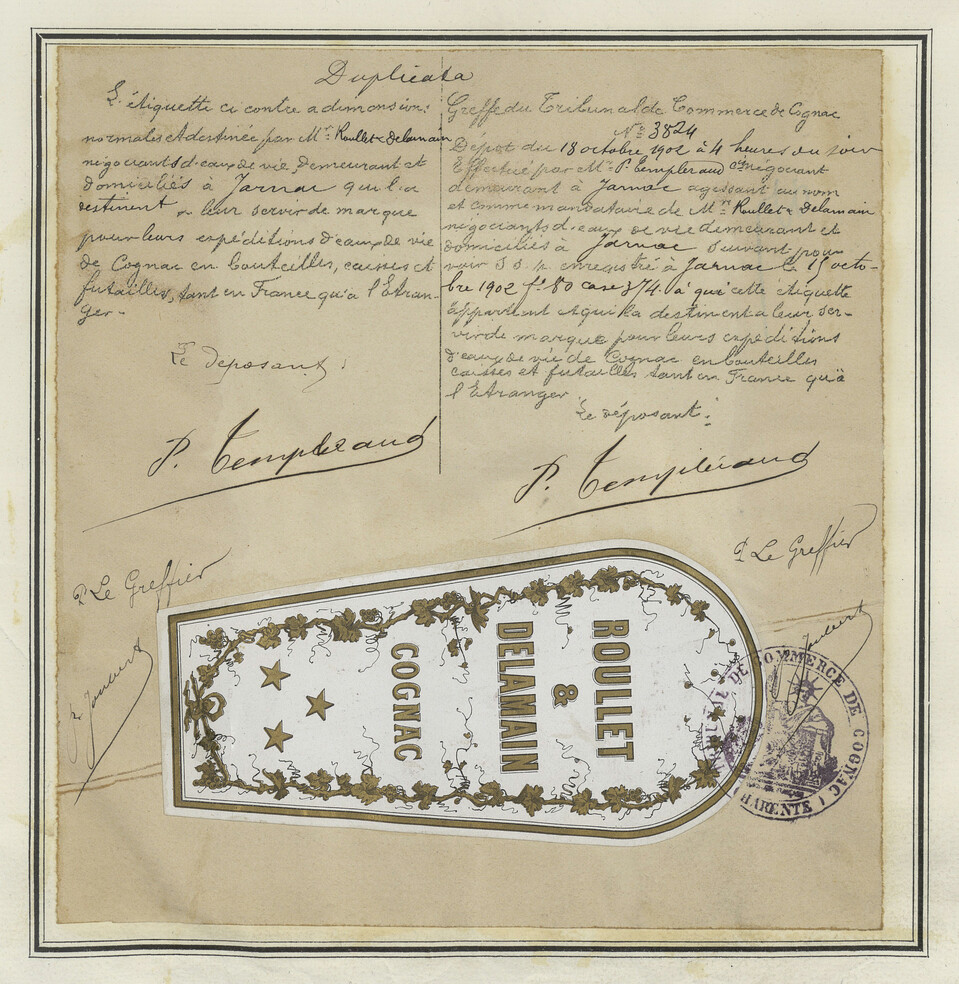 Duplicata
L'étiquette ci contre a dimensions
normales et destinée par Mrs Roullet & Delamain
négociants d'eaux de vie, demeurant et
domiciliés à Jarnac qui la
destinent à leur servir de marque
pour leurs expéditions d'eaux de vie
de Cognac en bouteilles, caisses et
futailles, tant en France qu'à l'Etran-
ger.
Le déposant:
P. Templéraud
P Le Greffier
Joubert
Greffe du Tribunal de Commerce de Cognac
No 3824
Dépot du 18 octobre 1902 à 4 heures du soir
Effectué par Mr P. Templeraud négociant
demeurant à Jarnac agissant au nom
et comme mandataire de Mrs Roullet & Delamain
négociants d'eaux de vie demeurant et
domiciliés à Jarnac suivant pou-
voir S. s. p. enregistré à Jarnac le 15 octo-
bre 1902 fo 80 case 374. a qui cette étiquette
appartient et qui la destinent a leur ser-
vir de marque pour leurs expéditions
d'eaux de vie de Cognac en bouteilles
caisses et futailles tant en France qu'à
l'Etranger
Le déposant:
P. Templéraud
P Le Greffier
Joubert
ROULLET
&
DELAMAIN
COGNAC
DE COMMERCE DE COGNAC
(CHARENTE)